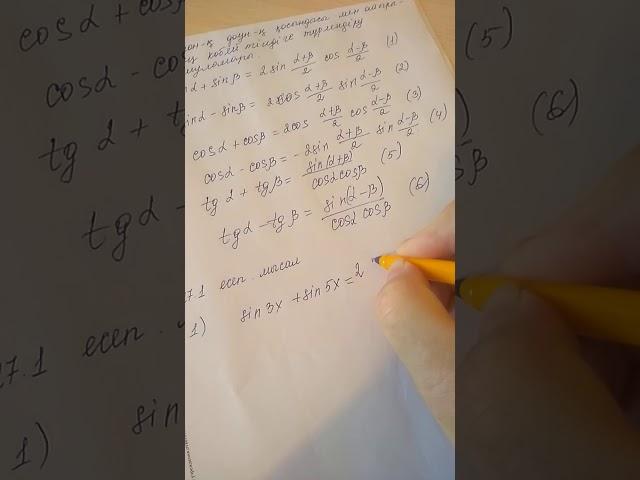 қосындысы мен айыр-
көбейтіндіге түрлендіру
sinβ = 2 sin α+β/2 cos α-β/2 (1)
- sinβ = 2 cos α+β/2 sin α-β/2 (2)
cosα + cosβ = 2cos α+β/2 cos α-β/2 (3)
cosα - cosβ = - 2sin α+β/2 sin α-β/2 (4)
tg α + tgβ = sin(α+β)/cosα cosβ (5)
tgα - tgβ = sin(α-β)/cosα cosβ (6)
7.1 есеп. мысал
1) sin 3x + sin 5x = 2